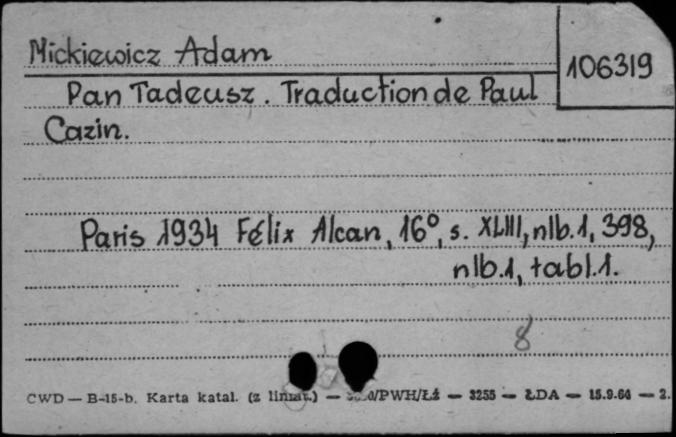 Mickiewicz Adam
106319
Pan Tadeusz. Traduction de Paul
Cazin.
Paris 1934 Félix Alcan, 16°, s. XLIII, nlb.1, 398,
nlb.1, tabl.1.
8
CWD — B-15-b. Karta katal. (z liniat.) — /PWH/Łż — 3255 — ŁDA — 15.9.64 — 2.